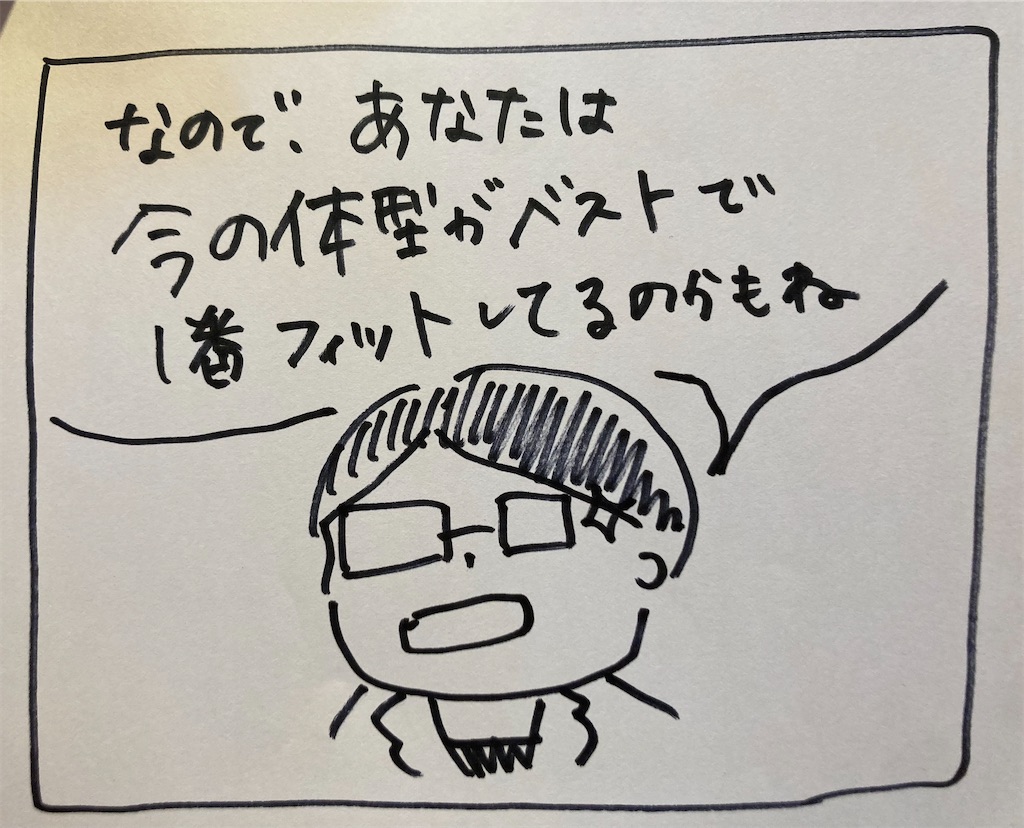 なので、あなたは
今の体型がベストで
1番フィットしてるのかもね